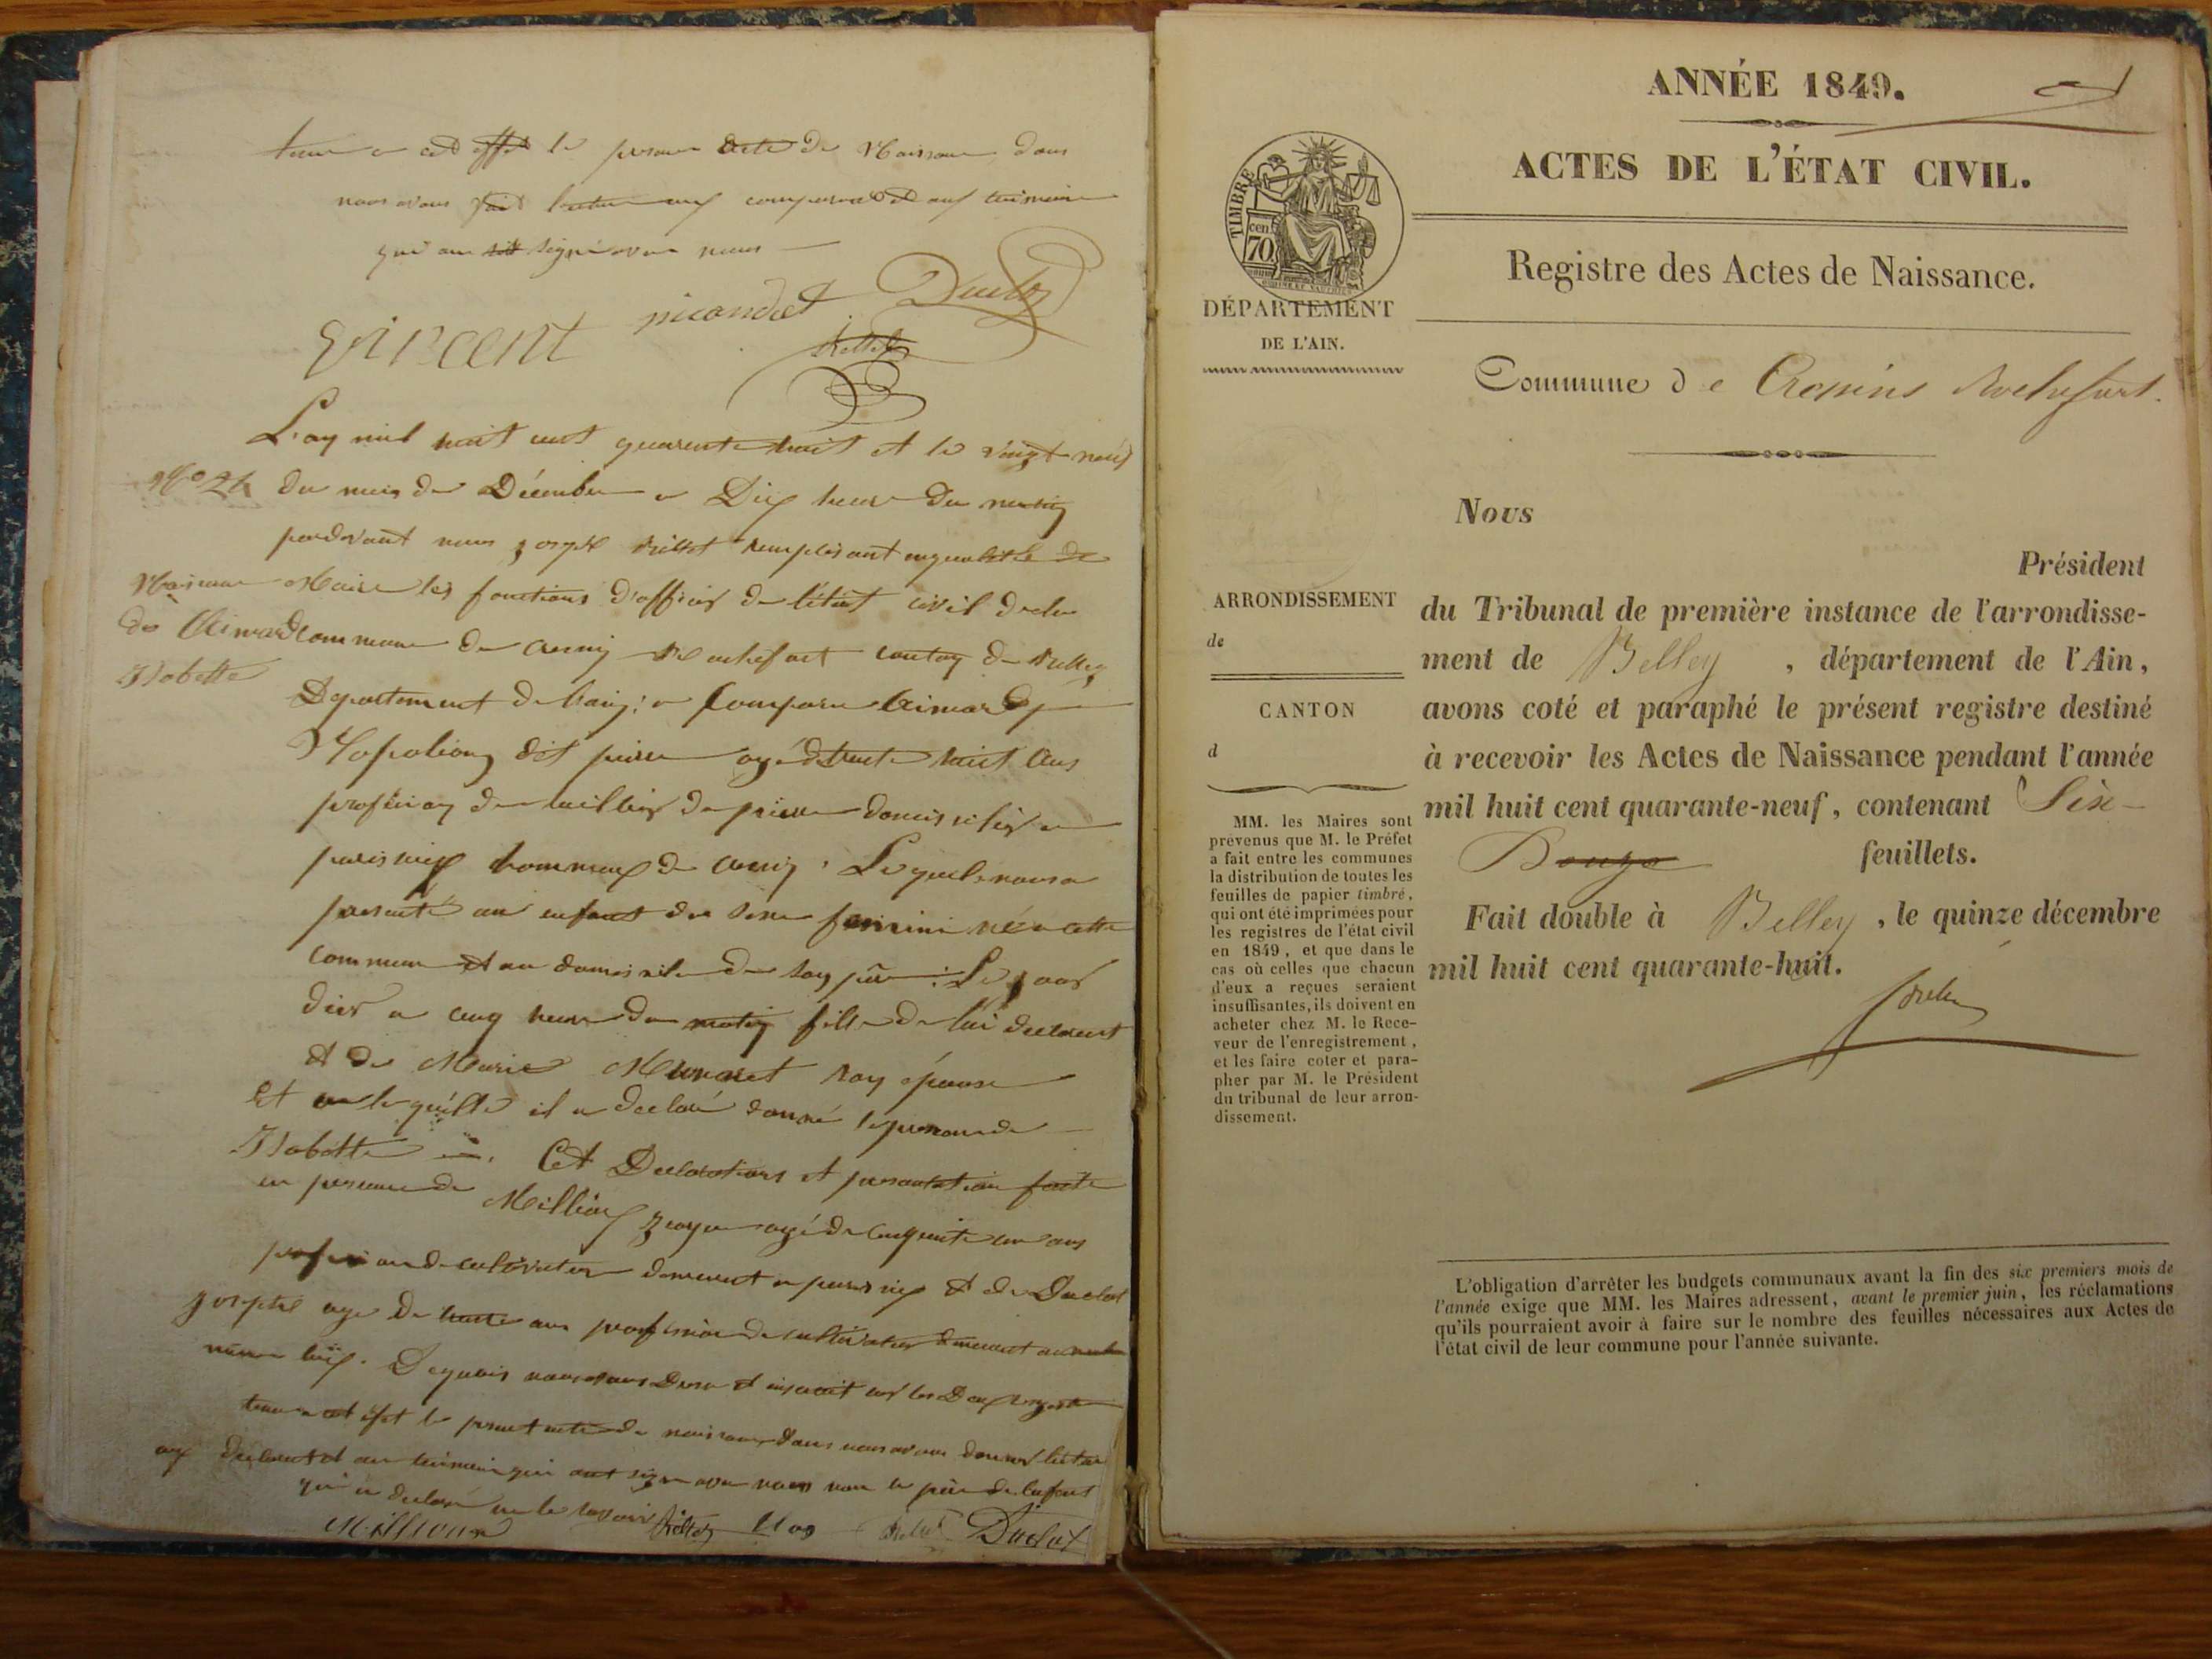 tenu a cet effet le presan acte de Naissance dons
nous avons fait lecture aux comparant et aux temoins
qui on signé avec nous
Vincent picondet Duclos
L'an mil huit cent quarente huit et le vingt neuf
N° 24 du mois de Décembre a Dix heure du matin
pardevant nous joseph remplissant en qualité de
Naissance Maire les fonctions d'officier de l'état civil de la
de Aimard commune de Rochefort canton de Belley
Isabelle
Département de l'ain; a Comparu Aimard
Napoléon dit pierre agé de trente huit Ans
profession de tailleur de pierre domicilier a
hammeaux de . Lequel nous a
presenté un enfant du sexe feminin née a cette
commune et au domicile de son père; Le jour
dier a cinq heure du matin fille de lui declarant
et de Marie son épouse
Et a laquelle il a declaré donné le prenom de
Isabelle. Cet Declaration et presantation faite
en presence de Millioux agé de cinquante un ans
profession de cultivateur demeurant a et de Duclot
joseph age de trente ans profession de cultivateur demeurant au
même lieux. De quois nous avons Dressé et inscrit sur les Deux registre
tenu a cet effet le present acte de naissance dans nous avons donner lecture
aux declarant et au temoins qui ont signe avec nous non le père de l'enfant
qui a declaré ne le savoir
Millioux Duclot
ANNÉE 1849.
ACTES DE L'ÉTAT CIVIL.
Registre des Actes de Naissance.
TIMBRE
cen.
70
DÉPARTEMENT
DE L'AIN.
Commune de Crepins Rochefort.
Nous
Président
ARRONDISSEMENT
de
CANTON
d
du Tribunal de première instance de l'arrondisse-
ment de Belley, département de l'Ain,
avons coté et paraphé le présent registre destiné
à recevoir les Actes de Naissance pendant l'année
mil huit cent quarante-neuf, contenant Six
feuillets.
Fait double à Belley, le quinze décembre
mil huit cent quarante-huit.
MM. les Maires sont
prévenus que M. le Préfet
a fait entre les communes
la distribution de toutes les
feuilles de papier timbré,
qui ont été imprimées pour
les registres de l'état civil
en 1849, et que dans le
cas où celles que chacun
d'eux a reçues seraient
insuffisantes, ils doivent en
acheter chez M. le Rece-
veur de l'enregistrement,
et les faire coter et para-
pher par M. le Président
du tribunal de leur arron-
dissement.
L'obligation d'arrêter les budgets communaux avant la fin des six premiers mois de
l'année exige que MM. les Maires adressent, avant le premier juin, les réclamations
qu'ils pourraient avoir à faire sur le nombre des feuilles nécessaires aux Actes de
l'état civil de leur commune pour l'année suivante.